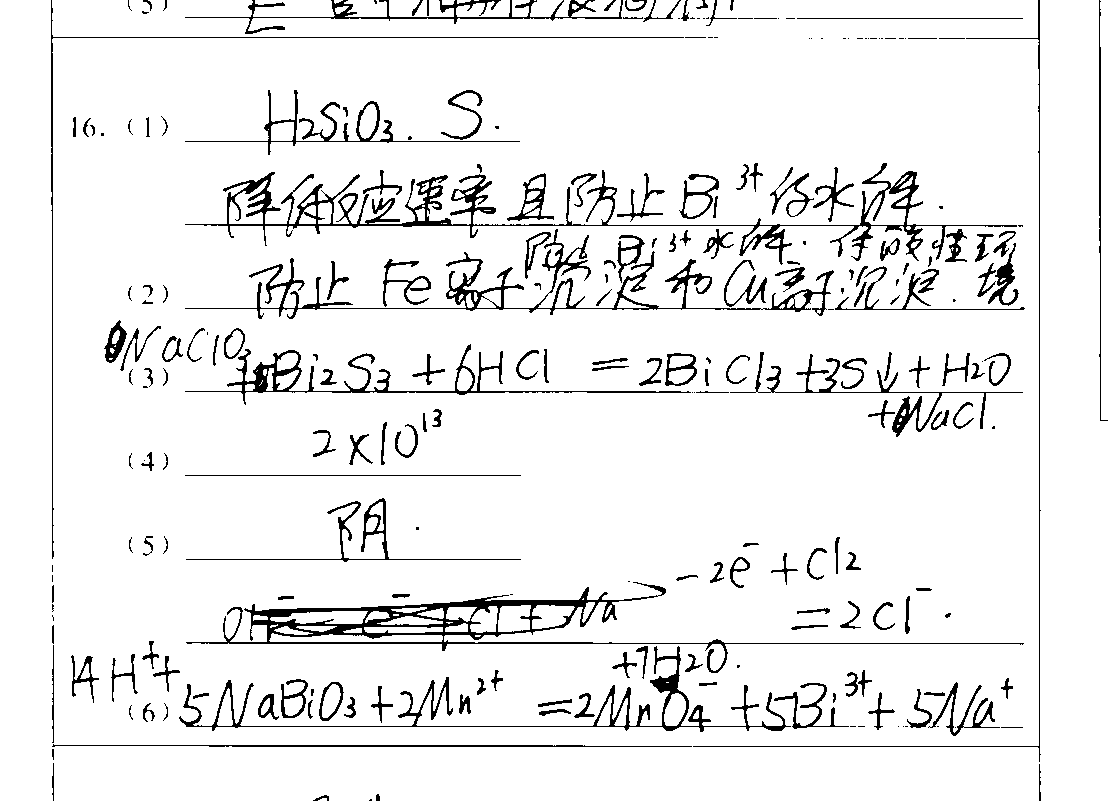 (5)
16. (1) H2SiO3. S.
降低反应速率且防止Bi³⁺ 水解.
防止 Bi³⁺ 水解. 保 酸性环
(2) 防止 Fe离子沉淀和Cu离子沉淀. 境
NaClO
(3) + Bi2S3 + 6HCl = 2BiCl3 + 3S↓ + H2O
+ NaCl.
(4) 2×10¹³
(5) 阴.
-2e⁻ + Cl2
= 2Cl⁻.
14H⁺+ +7H2O.
(6) 5NaBiO3 + 2Mn²⁺ = 2MnO4⁻ + 5Bi³⁺ + 5Na⁺